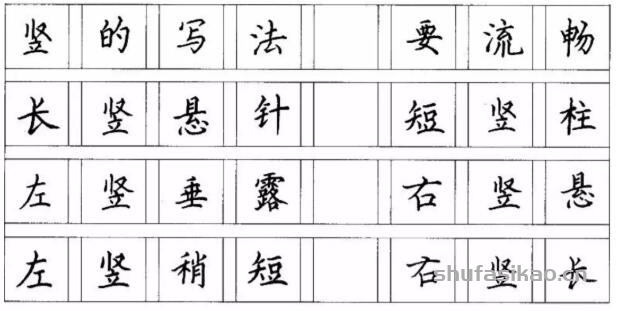 竖的写法 要流畅
长竖悬针 短竖柱
左竖垂露 右竖悬
左竖稍短 右竖长
shufasikao.cn